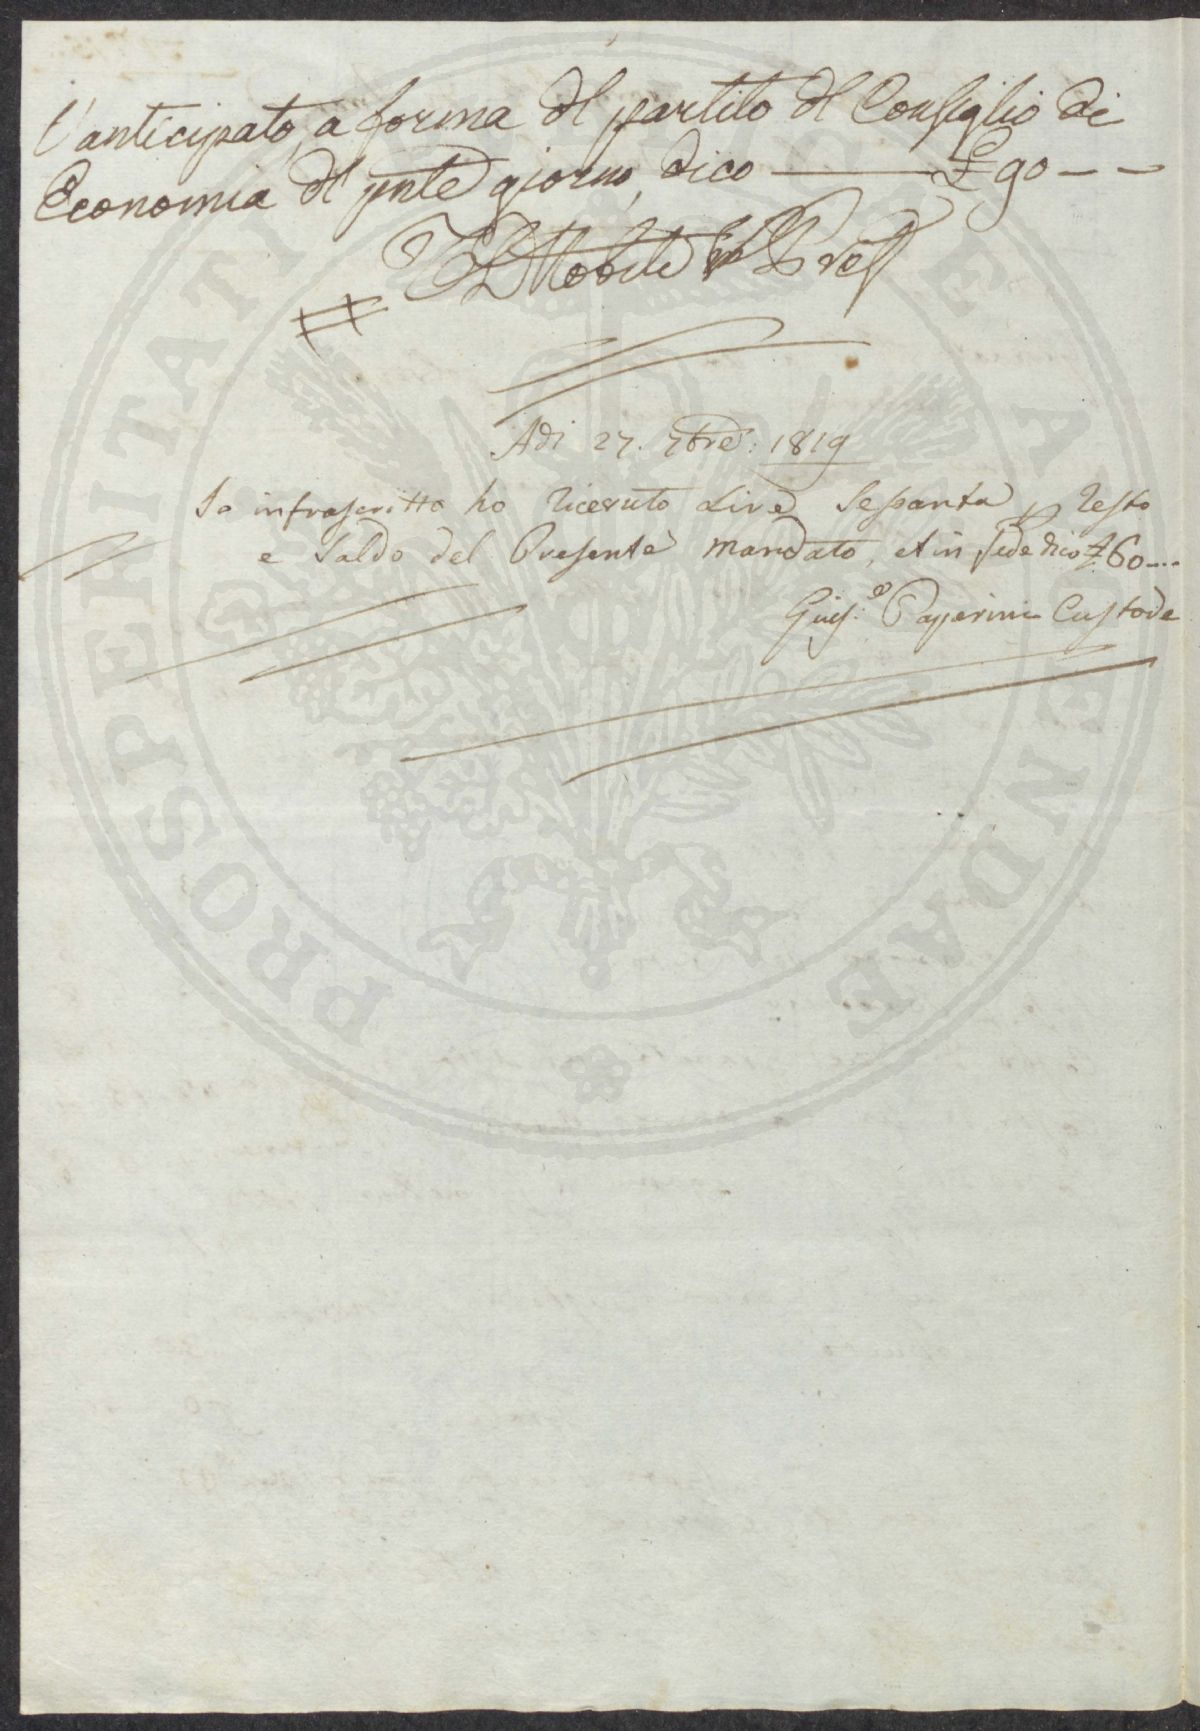 l'anticipato, a forma del partito del Consiglio di
Economia del pnte giorno, dico ——— £ 90 - -
Adi 27. 7bre: 1819
Io infrascritto ho ricevuto Lire Sessanta p resto
e Saldo del Presente mandato, et in fede dico £ 60....
Gius:e Paperini Custode
PROSPERITATI PUBLICAE AUGENDAE